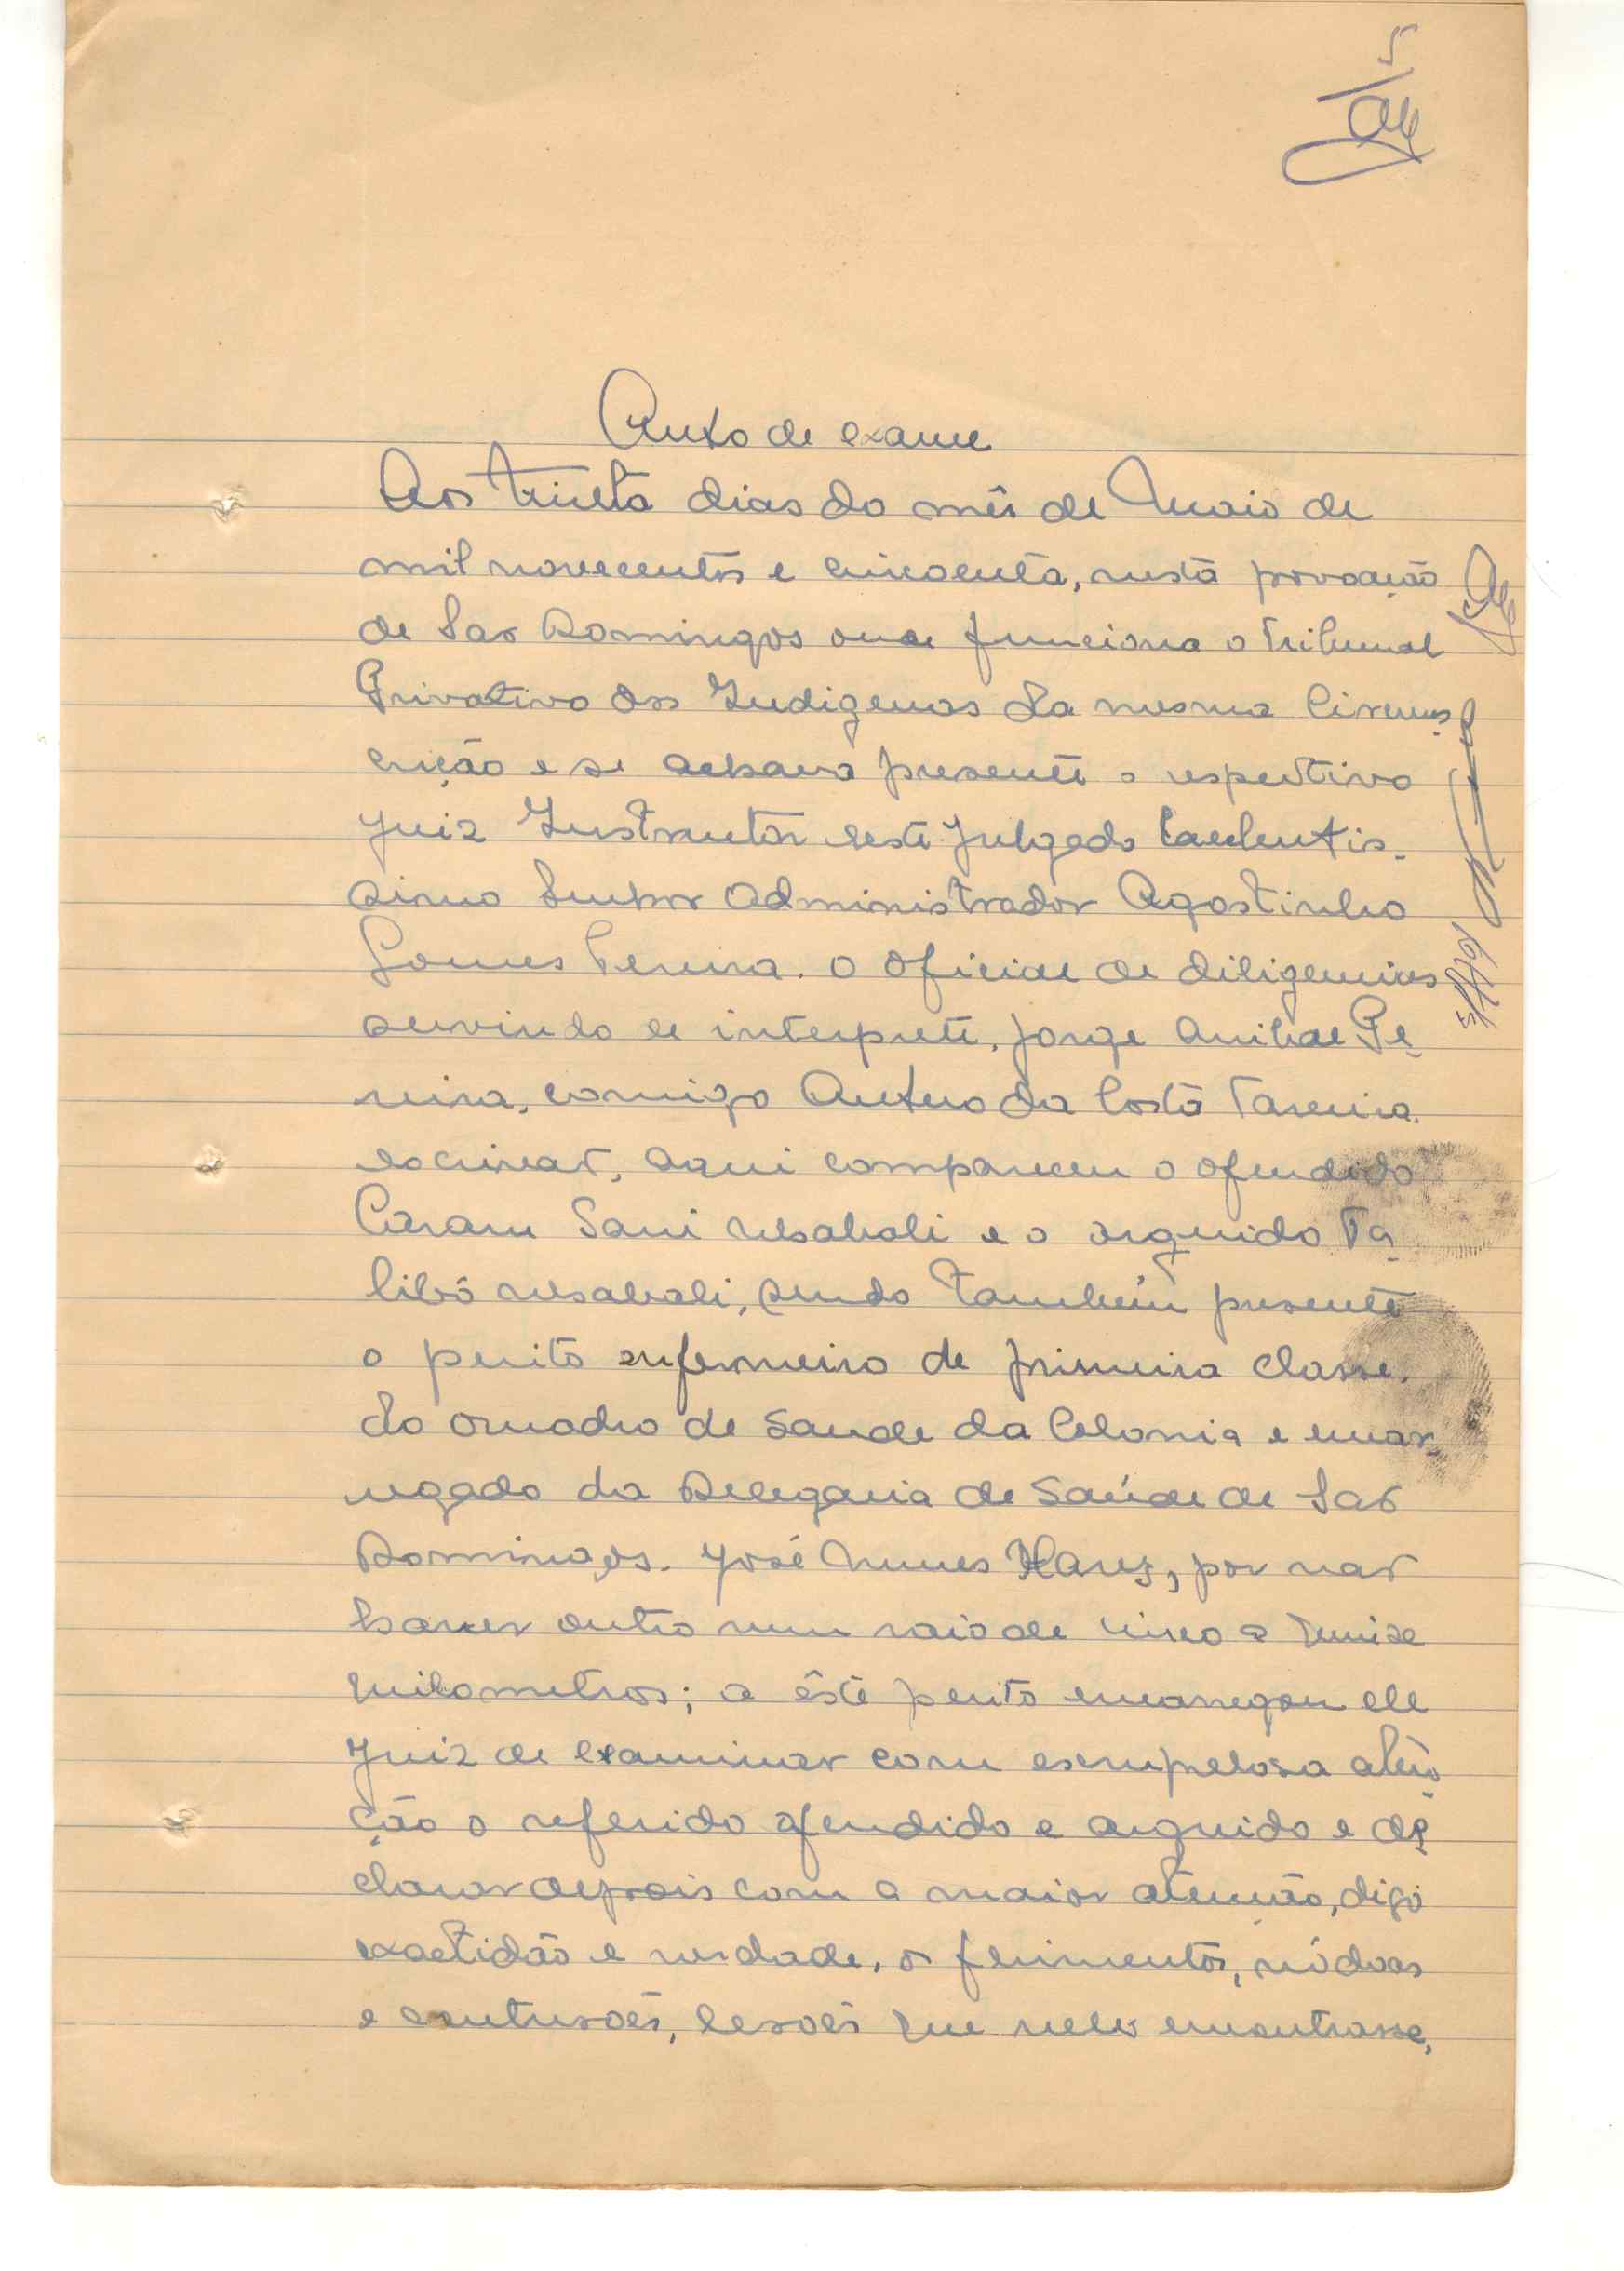 5
Auto de exame
Aos trinta dias do mês de Maio de
mil novecentos e cincoenta, nesta povoação
de Sao Domingos onde funciona o Tribunal
Privativo dos Indigenas da mesma Circuns-
crição e se achava presente o respectivo
Juiz Instrutor deste Julgado Excelentis-
simo Senhor Administrador Agostinho
Gomes Pereira. O Oficial de diligencias
servindo de interprete, Jorge Anibal Pe-
reira, comigo Antero da Costa Tareira.
escrivao, aqui compareceu o ofendido
Sani e o arguido Ta-
libó, sendo tambêm presente
o perito enfermeiro de primeira classe.
do quadro de saude da Colonia e encar-
regado da Delegacia de Saúde de Sao
Domingos. José Nunes, por nao
haver outro num raio de cinco a quinze
quilometros; a êste perito encarregou ele
Juiz de examinar com escrupelosa aten-
ção o referido ofendido e arguido e de-
clarar depois com a maior atenção, digo
exactidão e verdade, os ferimentos, nódoas
e contusões, lesões que neles encontrasse,